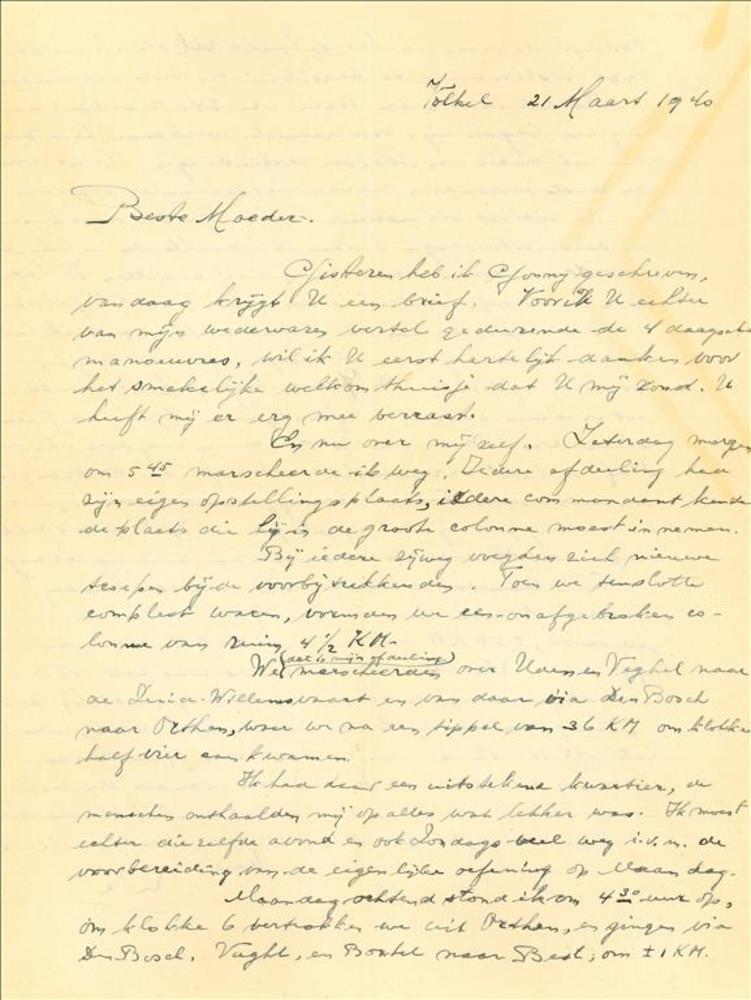 Volkel 21 Maart 1940
Beste Moeder.
Gisteren heb ik geschreven,
vandaag krijgt U een brief. Voor ik U echter
van mijn wedervaren vertel gedurende de 4 daagsche
manoeuvres, wil ik U eerst hartelijk danken voor
het smakelijke welkom thuisje dat U mij zond. U
heeft mij er erg mee verrast.
En nu over mij zelf. Zaterdag morgen
om 5 45 marscheerde ik weg. Iedere afdeeling had
zijn eigen opstellingsplaats, iedere commandant kende
de plaats die hij in de groote colonne moest innemen.
Bij iedere zijweg voegden zich nieuwe
troepen bij de voorbijtrekkenden. Toen we tenslotte
compleet waren, vormden we een onafgebroken co-
lonne van ruim 4 1/2 KM.
We (dat is mijn afdeeling) marscheerden over Uden en Veghel naar
de Zuid-Willemsvaart en van daar via Den Bosch
naar Orthen, waar we na een tippel van 36 KM om klokke
half vier aankwamen.
Ik had daar een uitstekend kwartier, de
menschen onthaalden mij op alles wat lekker was. Ik moest
echter die zelfde avond en ook Zondags veel weg i.v.m. de
voorbereiding van de eigenlijke oefening op Maandag.
Maandag ochtend stond ik om 4 30 uur op,
om klokke 6 vertrokken we uit Orthen, en gingen via
Den Bosch, Vught, en Boxtel naar Best, om ± 1 KM.